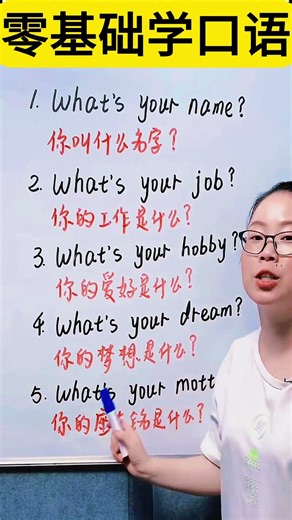 零基础学口语
1. What's your name?
你叫什么名字?
2. What's your job?
你的工作是什么?
3. What's your hobby?
你的爱好是什么?
4. What's your dream?
你的梦想是什么?
5. What's your mott
你的座铭是什么?